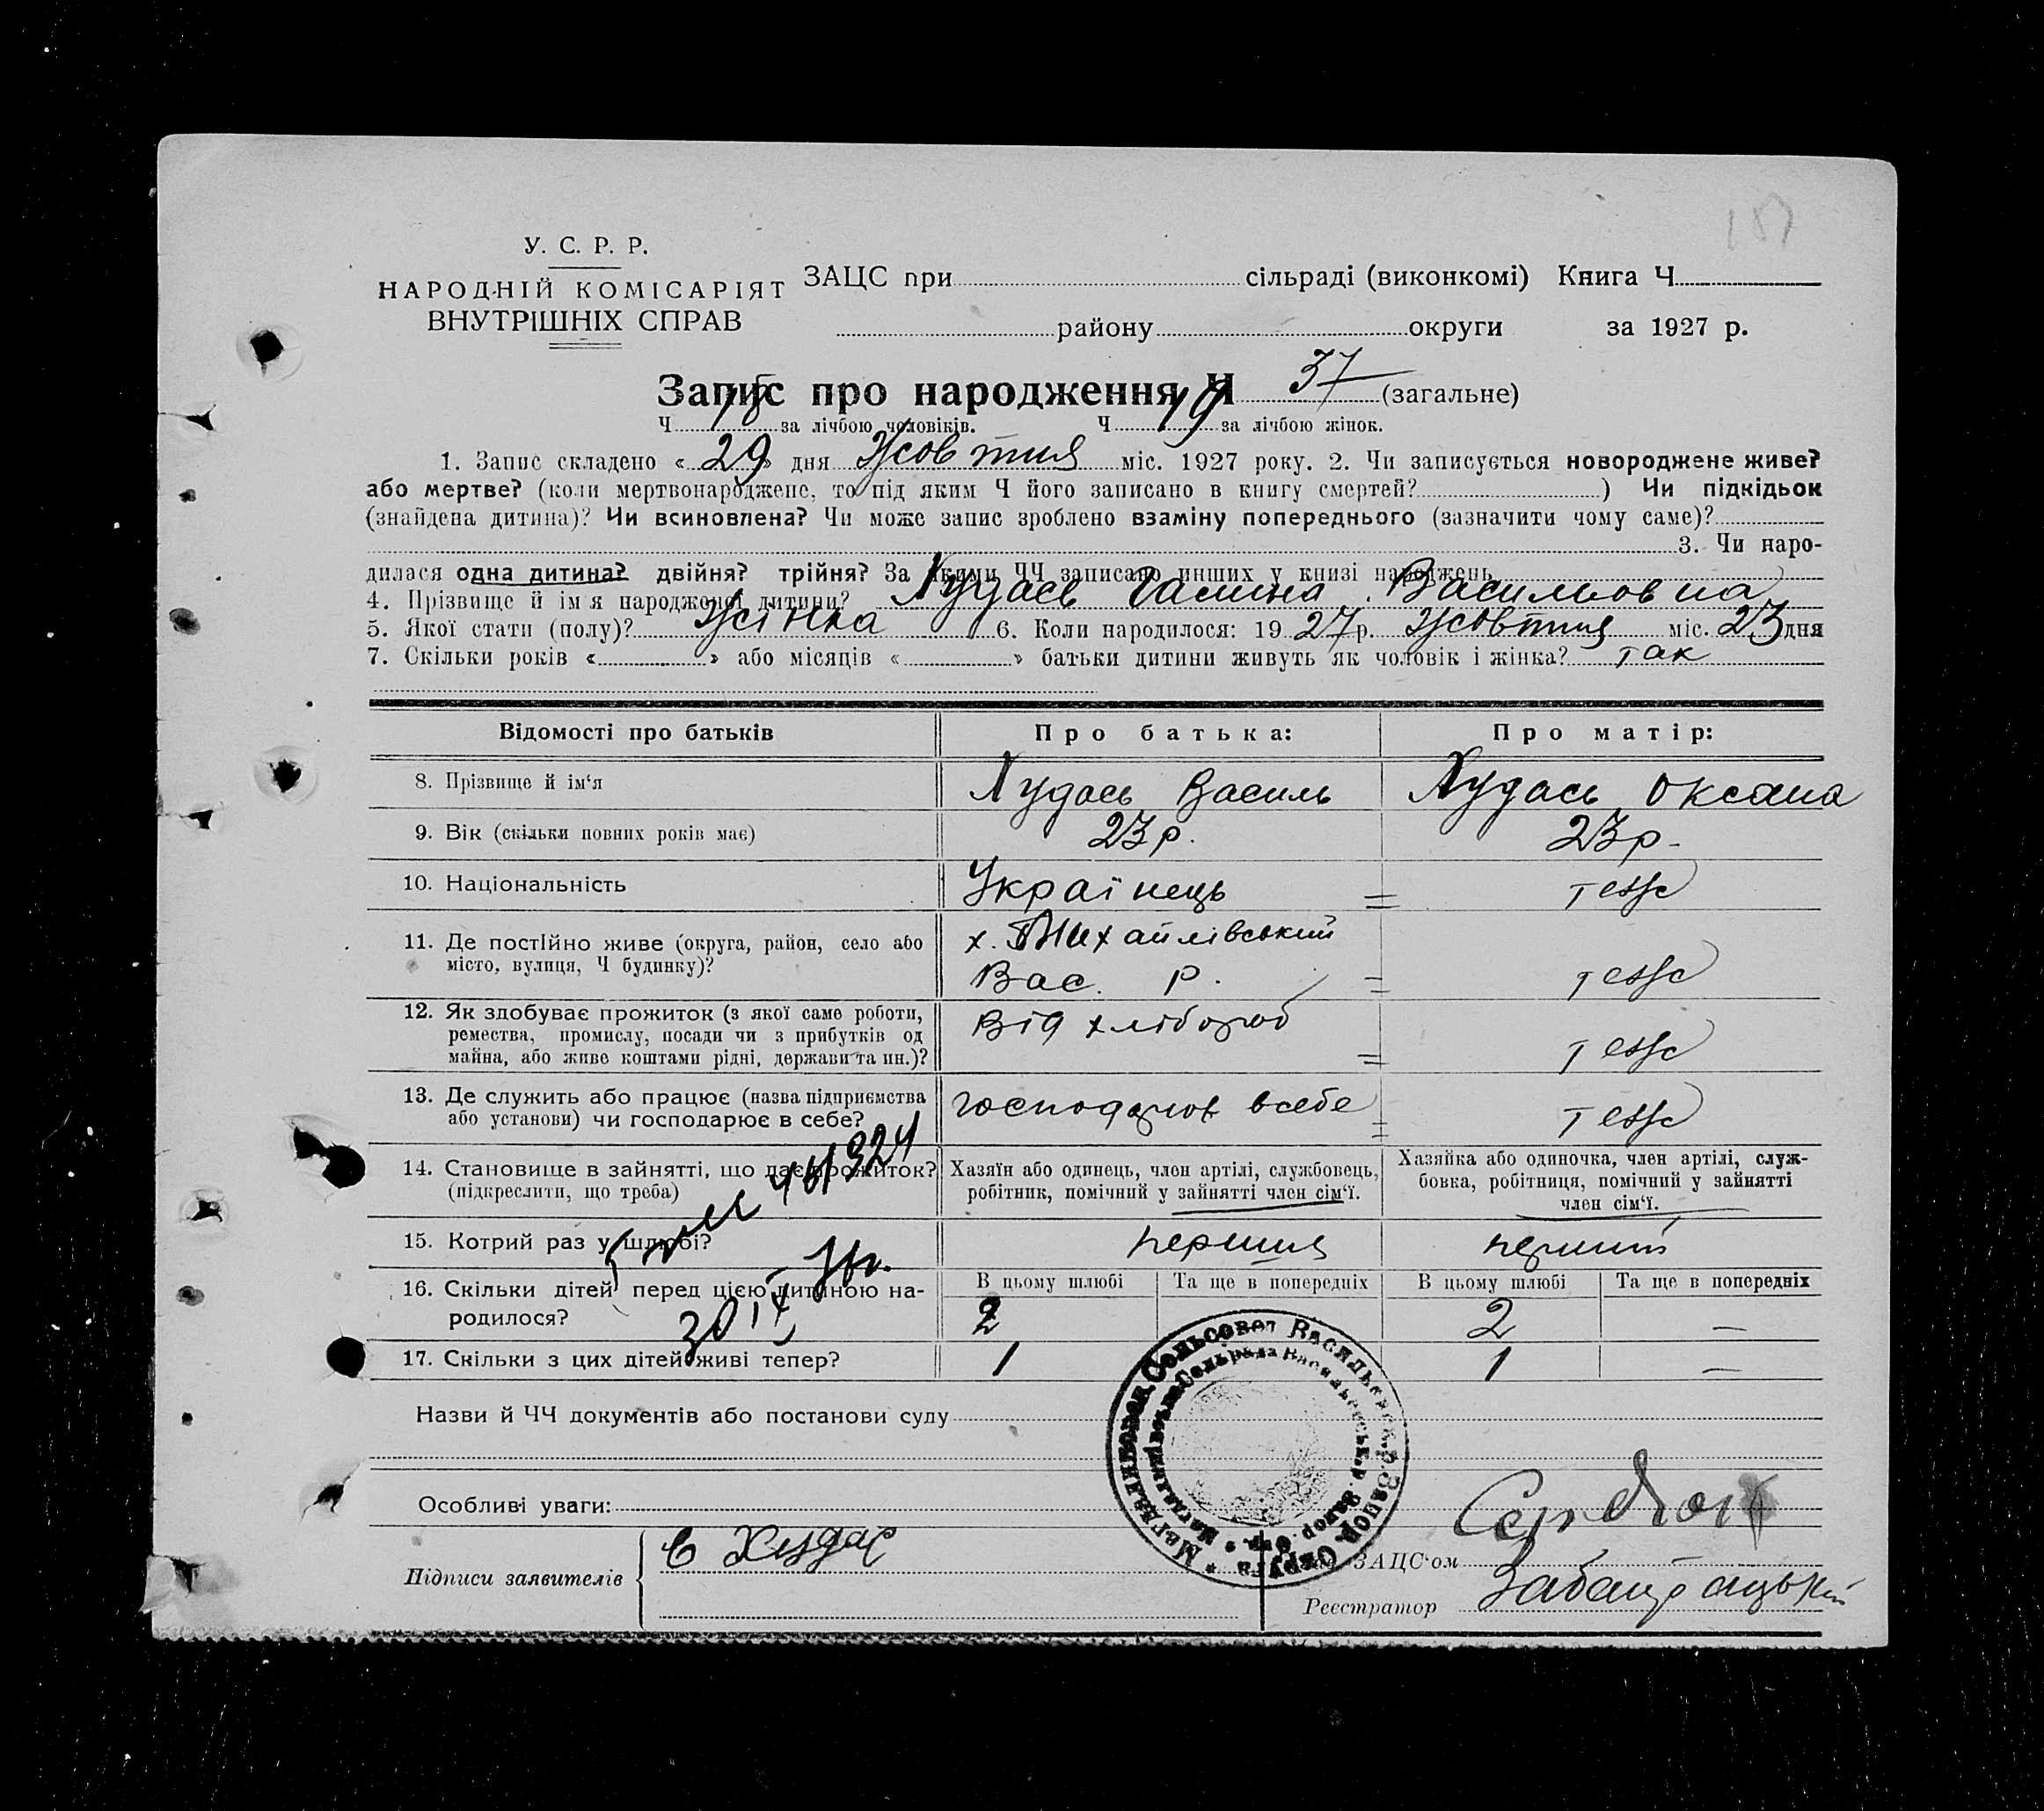 У. С. Р. Р.
НАРОДНІЙ КОМІСАРІЯТ
ВНУТРІШНІХ СПРАВ
ЗАЦС при сільраді (виконкомі) Книга Ч
району округи за 1927 р.
Запис про народження Ч 37 (загальне)
Ч 18 за лічбою чоловіків. Ч 19 за лічбою жінок.
1. Запис складено « 29 » дня Жовтня міс. 1927 року. 2. Чи записується новороджене живе?
або мертве? (коли мертвонароджене, то під яким Ч його записано в книгу смертей? ) Чи підкідьок
(знайдена дитина)? Чи всиновлена? Чи може запис зроблено взаміну попереднього (зазначити чому саме)?
3. Чи наро-
дилася одна дитина? двійня? трійня? За якими ЧЧ записано инших у книзі народжень
4. Прізвище й ім'я народженої дитини? Худась Галина Васильовна
5. Якої стати (полу)? Жінка 6. Коли народилося: 19 27 р. Жовтня міс. 23 дня
7. Скільки років « » або місяців « » батьки дитини живуть як чоловік і жінка? так
Відомості про батьків Про батька: Про матір:
8. Прізвище й ім'я Худась Василь Худась Оксана
9. Вік (скільки повних років має) 23 р. 23 р.
10. Національність Українець = теж
11. Де постійно живе (округа, район, село або
місто, вулиця, Ч будинку)? х. Михайлівський
Вас. Р. = теж
12. Як здобуває прожиток (з якої саме роботи,
ремества, промислу, посади чи з прибутків од
майна, або живе коштами рідні, держави та ин.)? Від хлібороб = теж
13. Де служить або працює (назва підприємства
або установи) чи господарює в себе? всебе = теж
14. Становище в зайнятті, що дає прожиток?
(підкреслити, що треба)
Хазяїн або одинець, член артілі, службовець,
робітник, помічний у зайнятті член сім'ї.
Хазяйка або одиночка, член артілі, служ-
бовка, робітниця, помічний у зайнятті
член сім'ї.
15. Котрий раз у шлюбі? перший перший
16. Скільки дітей перед цією дитиною на-
родилося?
В цьому шлюбі Та ще в попередніх В цьому шлюбі Та ще в попередніх
2 2 —
17. Скільки з цих дітей живі тепер? 1 1 —
Назви й ЧЧ документів або постанови суду
Особливі уваги:
Підписи заявителів В Худас
ЗАЦС'ом
Реєстратор